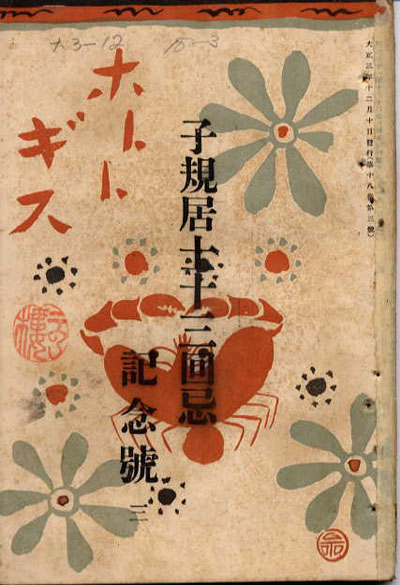 大3-12
15-3
ホトトギス
大正三年十二月十日發行(第十八卷第三號)
子規居士十三回忌
記念號
三